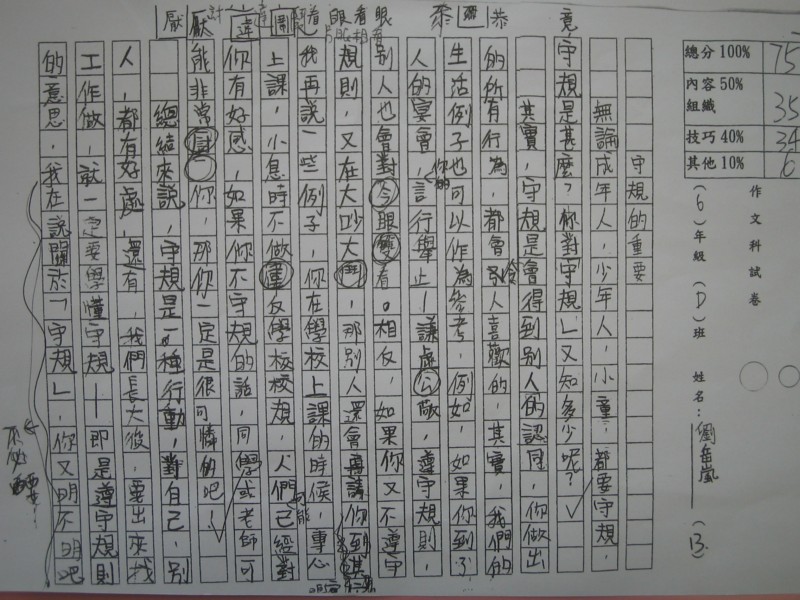 作文科試卷
(6)年級(D)班 姓名: (13)
總分100% 75
內容50% 組織 35
技巧40% 34
其他10% 6
守規的重要
無論成年人,少年人,小童,都要守規,
守規是甚麼?你對守規」又知多少呢?
其實,守規是會得到別人的認同,你做出
的所有行為,都會令人喜歡的,其實,我們的
生活例子也可以作為參考,例如,如果你到了
人的宴會,言行舉止—謙虛公敬,遵守規則,
別人也會對令眼雙看。相反,如果你又不遵守
規則,又在大吵大鬥,那別人還會再請你到
我再說一些例子,你在學校上課的時候,專心
上課,小息時不做重反學校校規,人們已經對
你有好感,如果你不守規的話,同學或老師可
能非常討 你,那你一定是很可憐的吧!
總結來說,守規是一種行動,對自己,別
人,都有好處,還有,我們長大後,要出來找
工作做,就一定要學懂守規——即是遵守規則
的意思,我在說關於「守規」,你又明不明吧
不必要!
恭
竟
厭
違